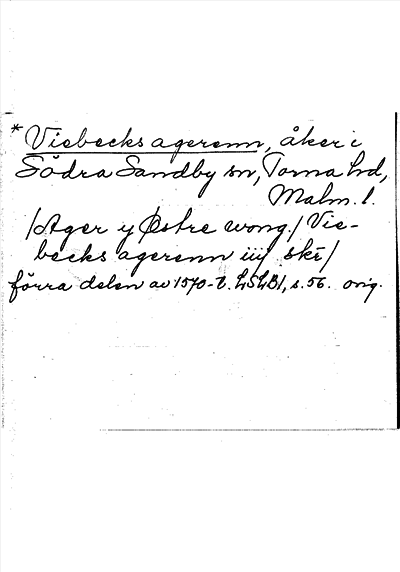 * Viebecks agerenn, åker i
Södra Sandby sn, Torna hd,
Malm. l.
/Ager y Østre wong./ Vie-
becks agerenn iiij ske/
förra delen av 1570-t. LSLB1, s. 56. orig.